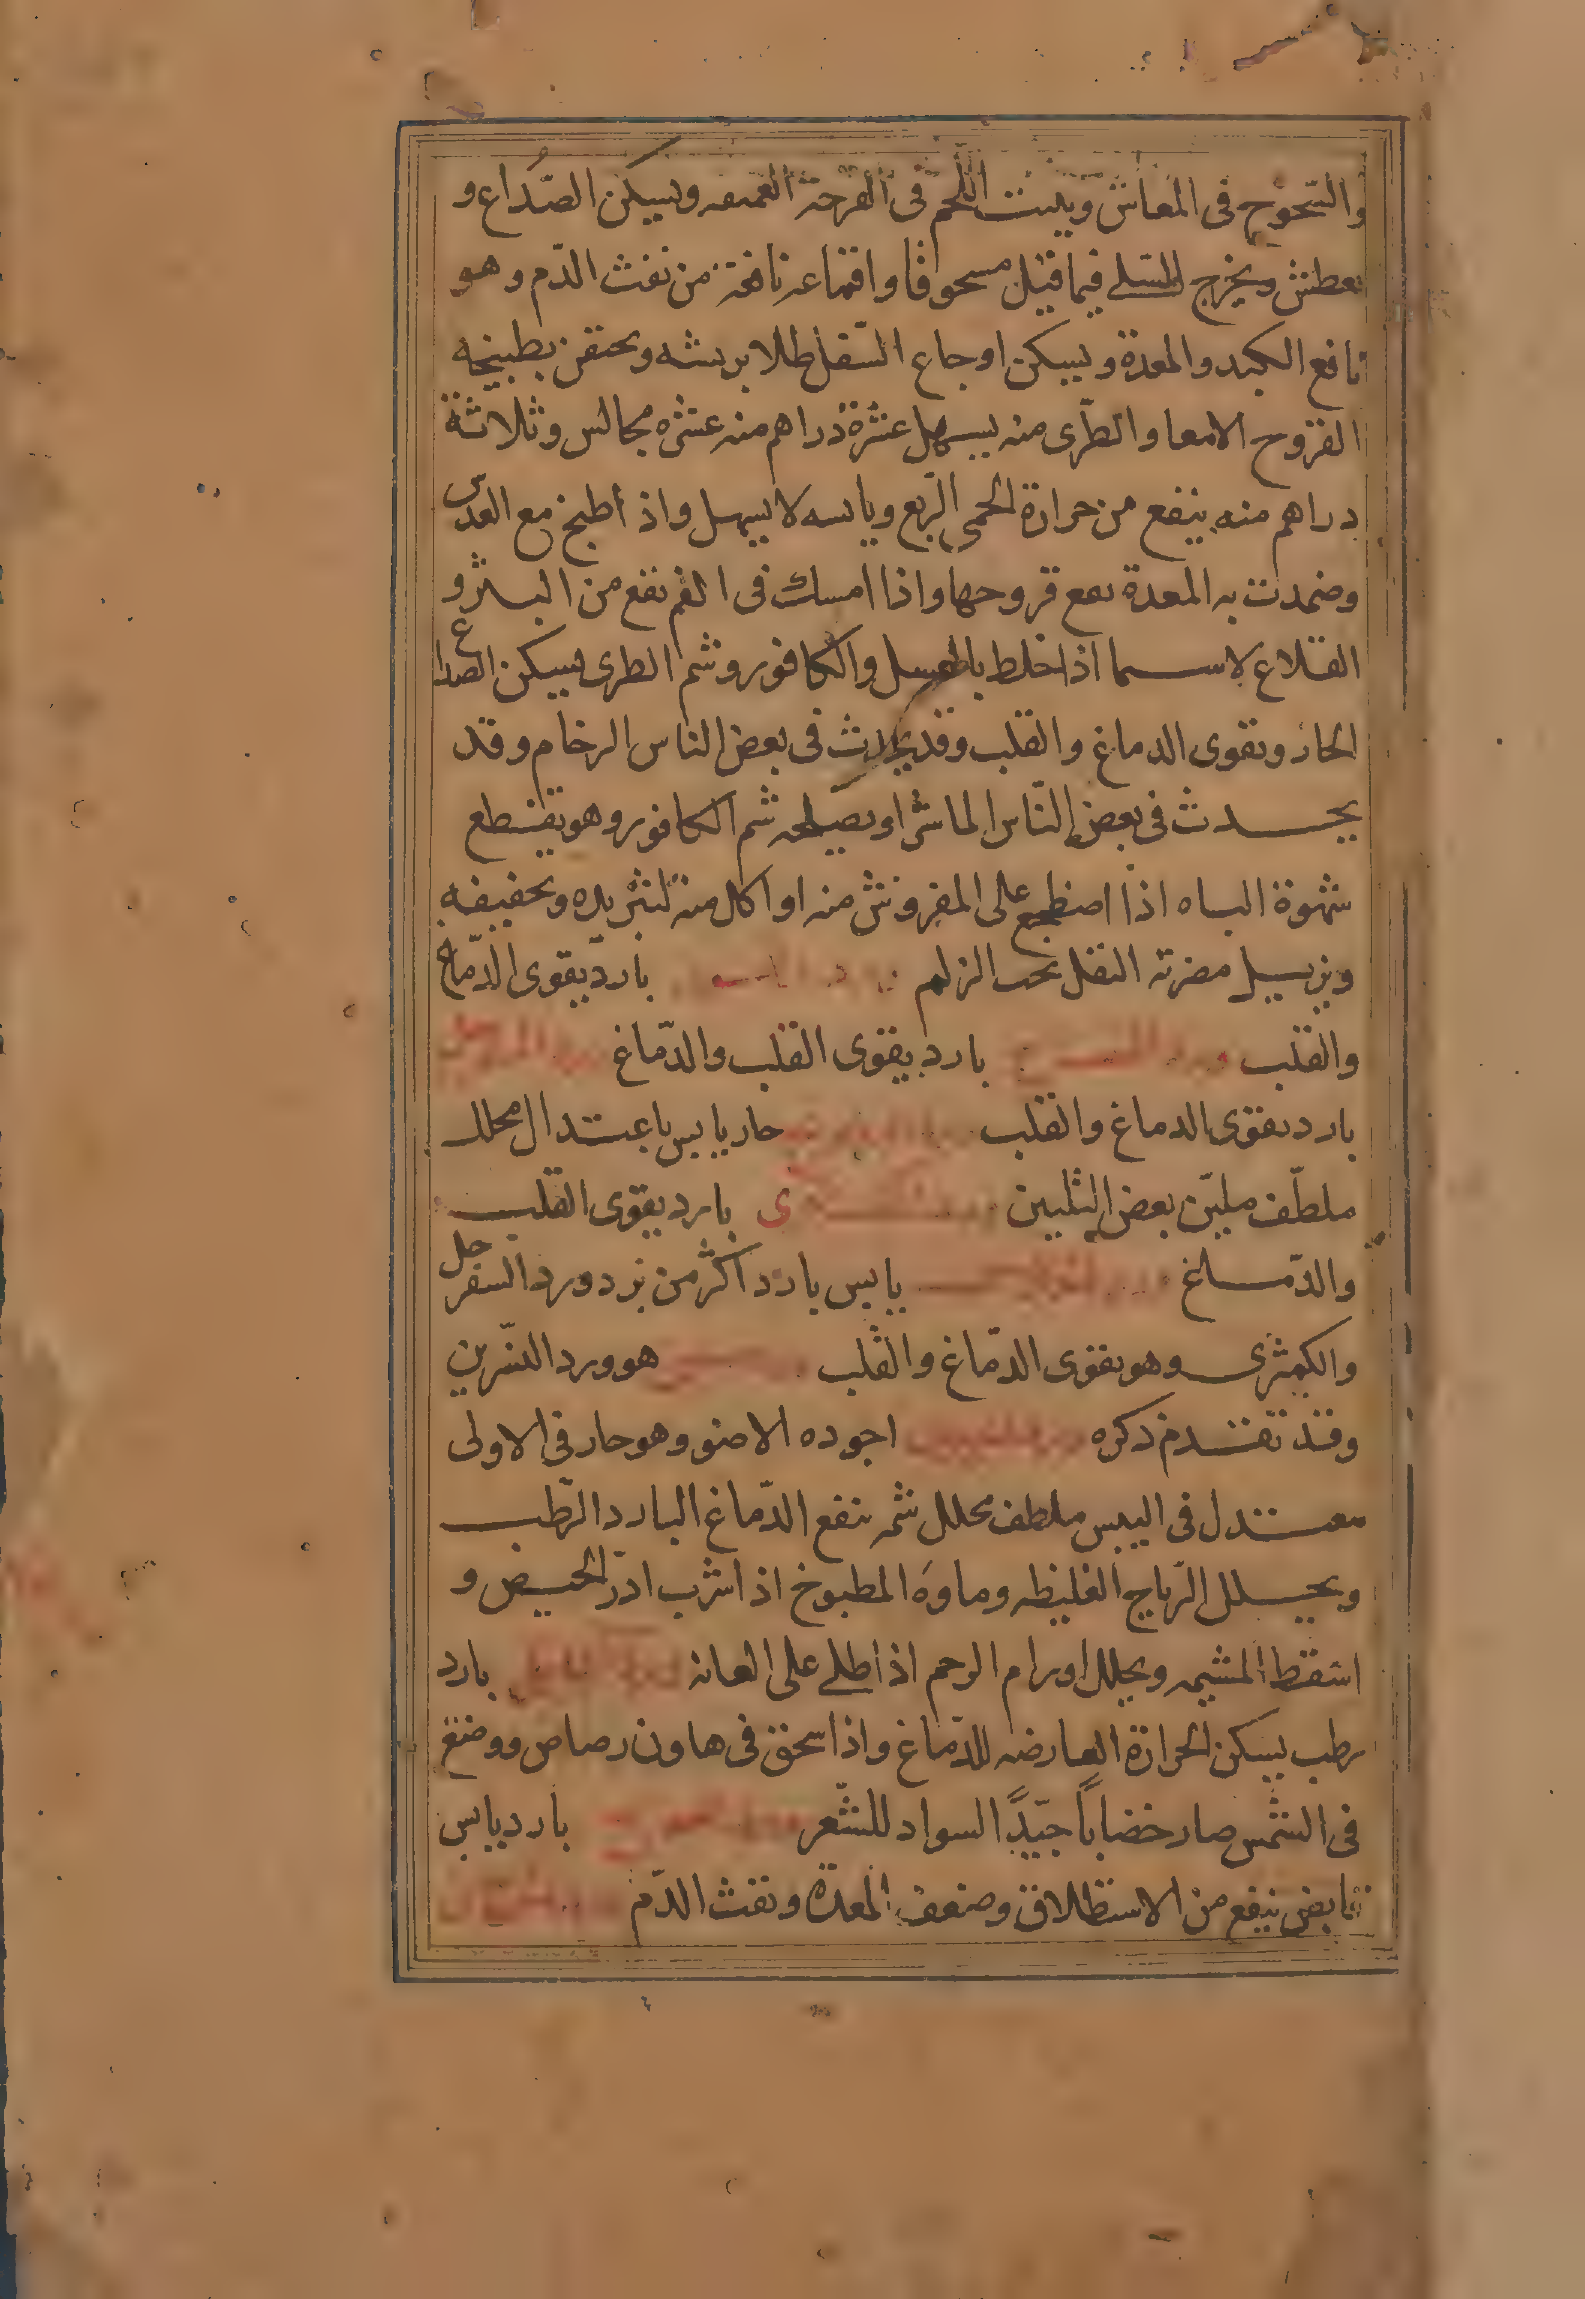 والسحوج فى المعاش وينبت اللحم فى القرحة العميقه ويسكن الصّداع و
يعطش ويخرج السلى فيما قيل مسحوقا واقماعه نافعة من نفث الدّم وهو
نافع الكبد والمعدة ويسكن اوجاع السّفل طلا بريشه ويحتقن بطبيخه
القروح الامعا والطّرى منه يسهل عشرة دراهم منه عشره مجالس وثلاثة
دراهم منه ينفع من حرارة الحمى الرّبع ويابسه لا يسهل واذا طبخ مع العدس
وضمدت به المعدة نفع قروحها واذا امسك فى الفم نفع من البثر و
القلاع لاسيما اذا خلط بالعسل والكافور وشم الطرى يسكن الصداع
الحار ويقوى الدماغ والقلب وقد يحدث فى بعض الناس الزخام وقد
يحدث فى بعض النّاس الماشرا ويصلحه شم الكافور وهو يقطع
شهوة الباه اذا اضطجع على المفروش منه او اكل منه لتبريده وتجفيفه
ويزيل مضرته النقل بحب الزلم بارد يقوى الدّماغ
والقلب بارد يقوى القلب والدّماغ
بارد يقوى الدماغ والقلب حار يابس باعتدال محلل
ملطّف مليّن بعض التليين بارد يقوى القلب
والدّماغ يابس بارد اكثر من برد ورد السفرجل
والكمثرى وهو يقوى الدّماغ والقلب هو ورد النسّرين
وقد تقدم ذكره اجوده الاصفر وهو حار فى الاولى
معتدل فى اليبس ملطف محلل شمه ينفع الدّماغ البارد الرّطب
ويحلل الرّياح الغليظه وماوه المطبوخ اذا شرب ادرّ الحيض و
اسقط المشيمه ويحلل اورام الرحم اذا طلى على العانه بارد
رطب يسكن الحرارة العارضه للدّماغ واذا سحق فى هاون رصاص ووضع
فى الشمس صار خضاباً جيّداً السواد للشّعر بارد يابس
قابض ينفع من الاستطلاق وضعف المعدة ونفث الدّم